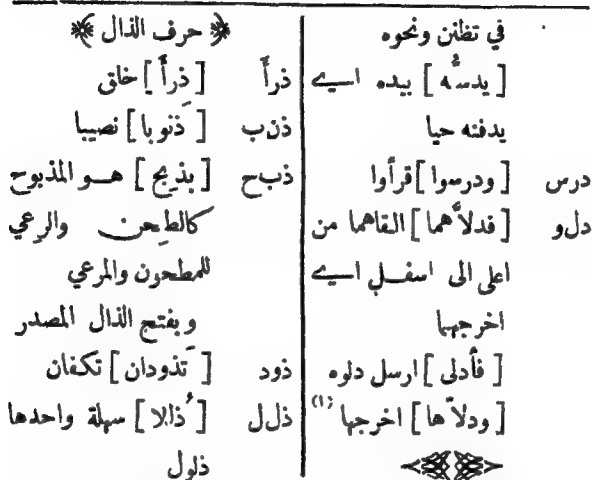 في تظنن ونحوه
[يدسُّه] بيده اى
يدفنه حيا
درس [ودرسوا] قرأوا
دلو [فدلاَّهما] القاهما من
اعلى الى اسفل اى
اخرجهما
[فأدلى] ارسل دلوه
[ودلاَّها] اخرجها (١)
﴿ حرف الذال ﴾
ذرأ [ذرأَ] خلق
ذنب [ذَنوبا] نصيبا
ذبح [بذِبح] هو المذبوح
كالطِحن والرِعي
للمطحون والمرعي
وبفتح الذال المصدر
ذود [تَذودان] تكفان
ذلل [ذُللا] سهلة واحدها
ذلول